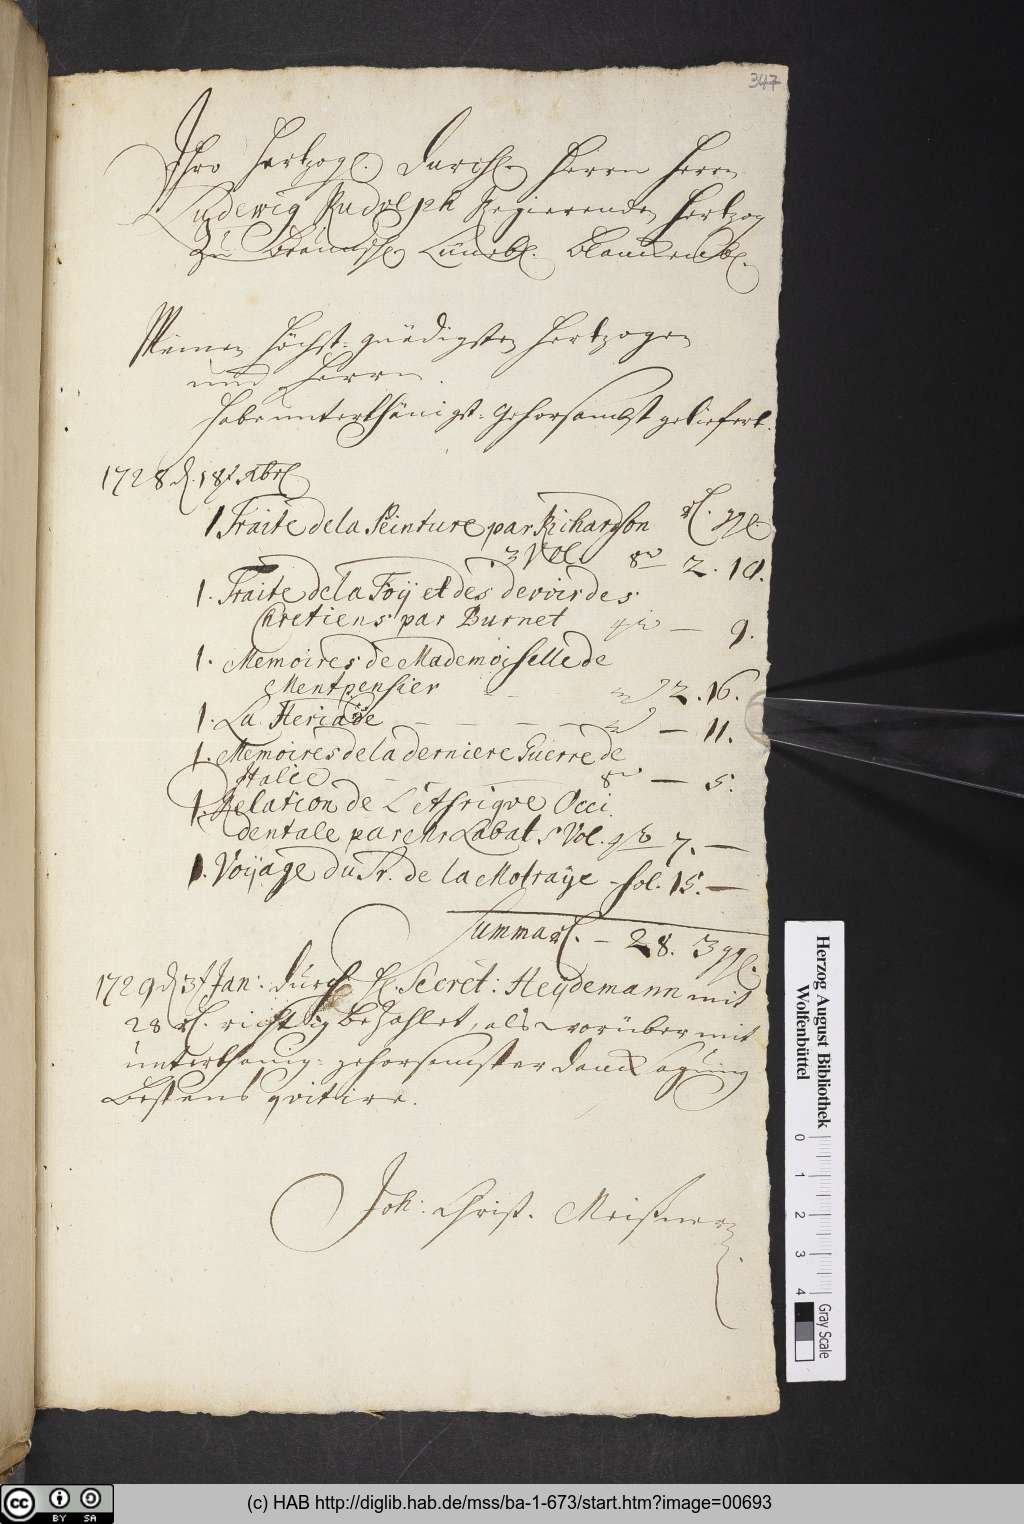 347
Ihro Hertzogl. Durchl. Herrn Herrn
Ludewig Rudolph Regierenden Hertzog
zu Braunschl. Lünebl. Blanckenbl.
Meinen Höchst: gnädigsten Hertzogen
und Herrn.
habe unterthänigst: gehorsambst geliefert.
1728 d. 18t Xbrl
1 Traite de la Peinture par Richardson rl. ggl.
3 Vol. 8vo 2. 10.
1. Traite de la Foÿ et des devoirs des
Chretiens par Burnet — 9.
1. Memoires de Mademoiselle de
Montpensier 2. 16.
1. La Heriade — — — — — 11.
1. Memoires de la derniere Guerre de
Italie 8vo — 5.
1. Relation de L'Afrique Occi
dentale par Mr Labat 5 Vol. 7. —
1. Voÿage du Sr. de la Motraÿe fol. 15. —
Summa rl. — 28. 3 ggl.
1729 d 3t Jan: durch H. Secret: Heÿdemann mit
28 rl. richtig bezahlet, als worüber mit
unterthänig: gehorsamster Dancksagung
bestens qvitire.
Joh: Christ. Meißner
Herzog August Bibliothek
Wolfenbüttel
0 1 2 3 4
Gray Scale
CC BY SA
(c) HAB http://diglib.hab.de/mss/ba-1-673/start.htm?image=00693